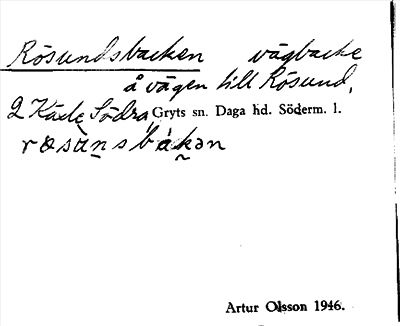 Rösundsbacken vägbacke
å vägen till Rösund,
2 Käxle Södra, Gryts sn. Daga hd. Söderm. l.
rɷsúnsbàkən
Artur Olsson 1946.